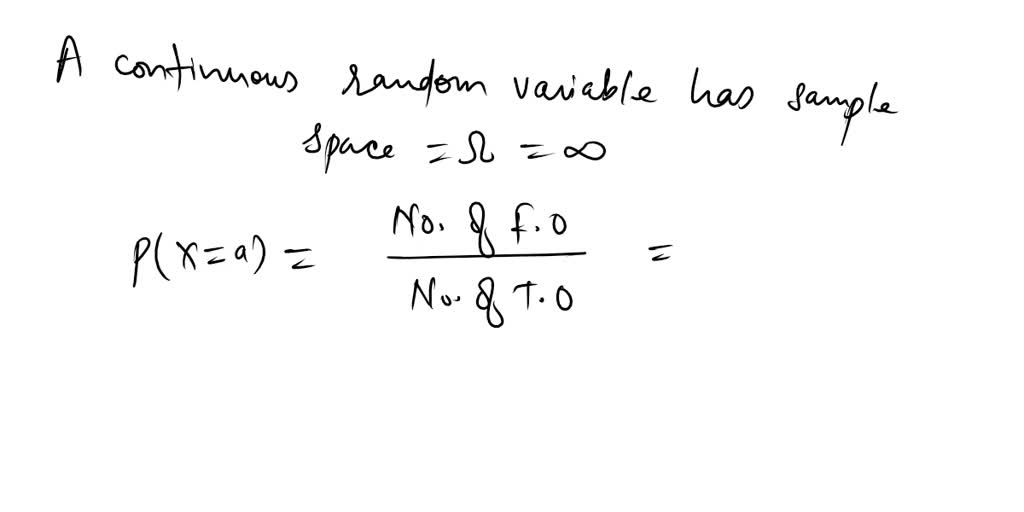 A continuous random variable has sample
space = Ω = ∞
P(X=a) = No. of f.o / No. of T.O =